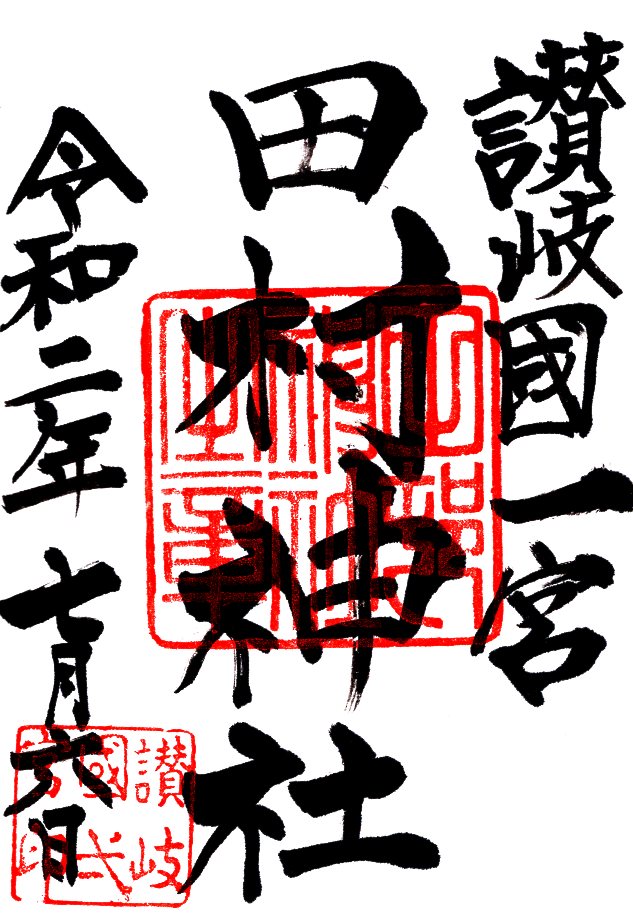 讃岐國一宮
田村神社
令和二年七月六日